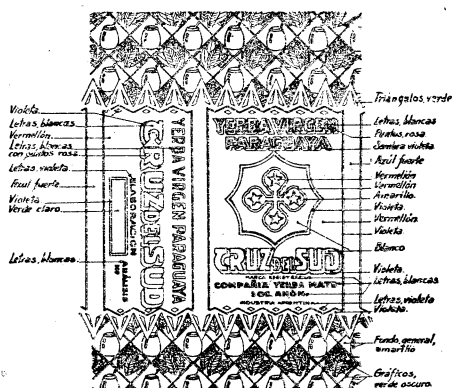 Violeta
Letras, blancas
Vermellón
Letras, blancas
con puntos rosa
Letras, violeta
Azul fuerte
Violeta
Verde claro
Letras, blancas
YERBA VIRGEN PARAGUAYA
CRUZ DEL SUD
ELABORACION
ANALISIS
YERBA VIRGEN
PARAGUAYA
CRUZ DEL SUD
MARCA REGISTRADA
COMPAÑIA YERBA MATE
SOC. ANÓN.
INDUSTRIA ARGENTINA
Triángulos, verde
Letras, blancas
Puntos, rosa
Sombra violeta
Azul fuerte
Vermellón
Vermellón
Amarillo
Violeta
Vermellón
Violeta
Blanco
Violeta
Letras, blancas
Letras, violeta
Violeta
Fondo, general,
amarillo
Gráficos,
verde oscuro